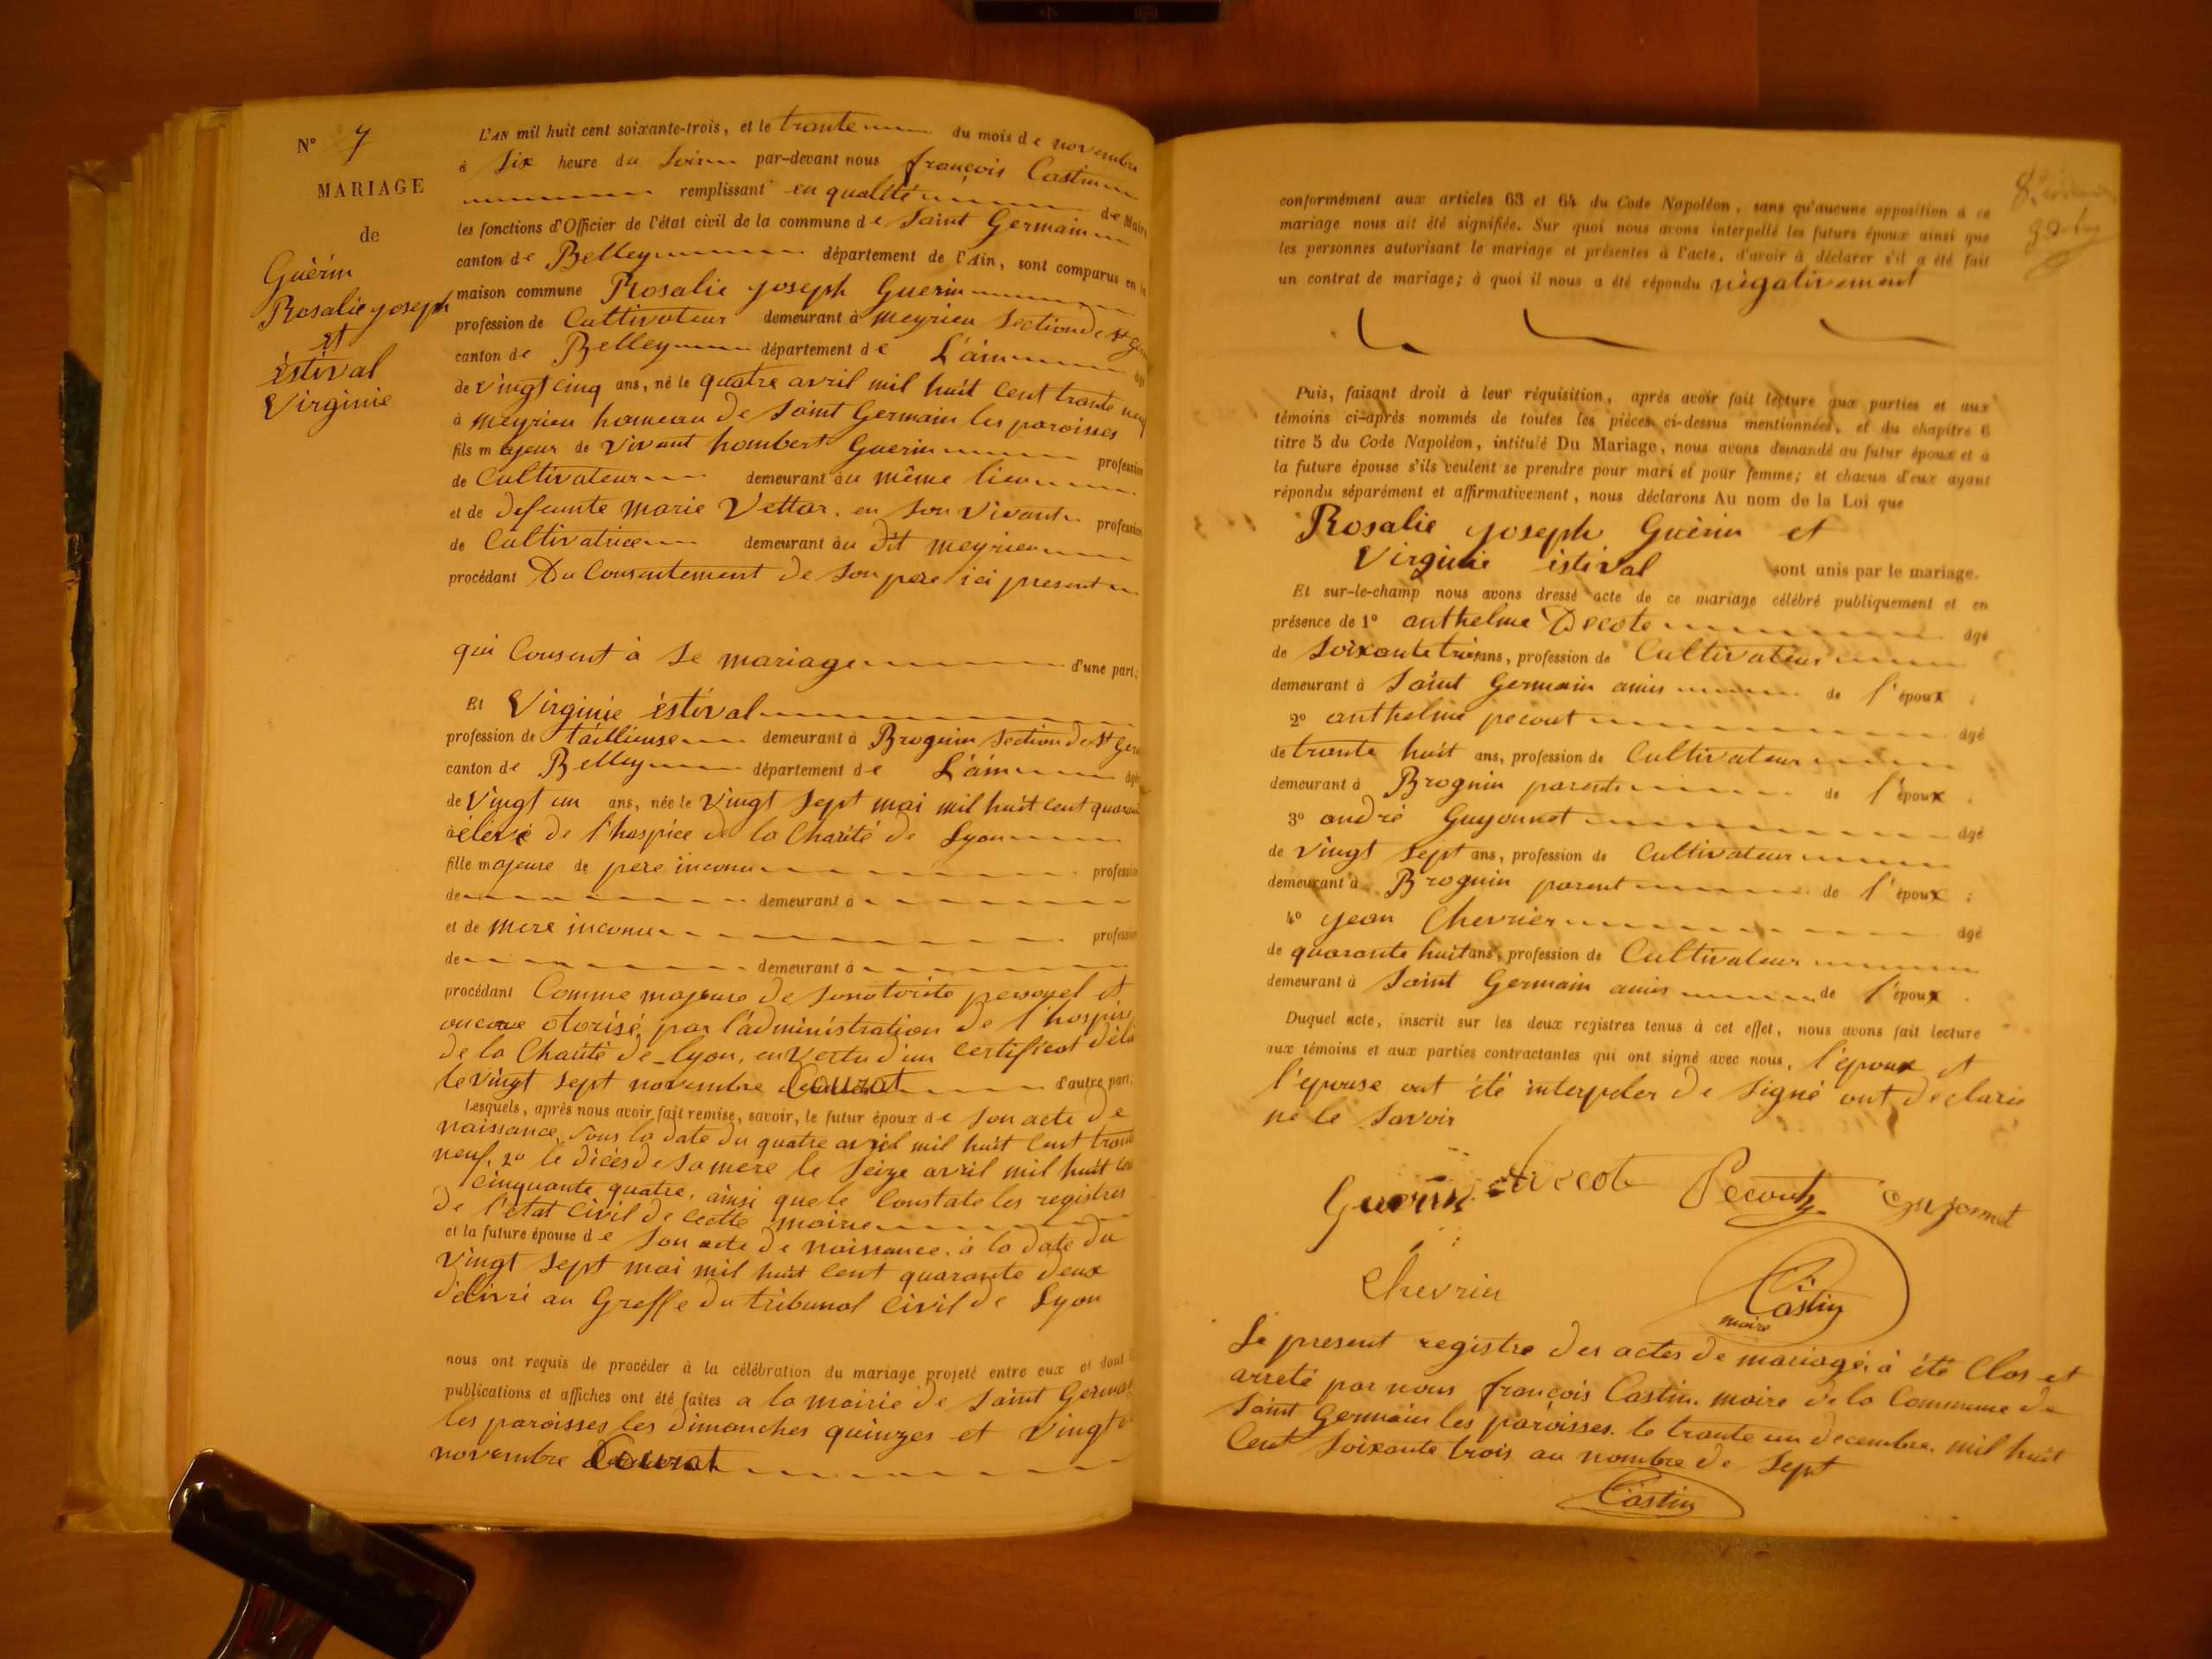 N° 7
MARIAGE
de
Guèrin
Rosalie yoseph
et
èstival
Virginie
L'AN mil huit cent soixante-trois, et le trante du mois de novembre
à Six heure du Soir par-devant nous françois Castin
remplissant en qualité de Maire
les fonctions d'Officier de l'état civil de la commune de Saint Germain
canton de Belley département de l'Ain, sont comparus en la
maison commune Rosalie yoseph Guerin
profession de Cultivateur demeurant à meyrieu Section de St Ger
canton de Belley département de L'ain âgé
de vingt cinq ans, né le quatre avril mil huit cent trante neuf
à meyrieu homeau de Saint Germain les paroisses
fils majeur de Vivant hombert Guerin profession
de Cultivateur demeurant au même lieu
et de defeunte marie Vettar. en Son Vivant profession
de Cultivatrice demeurant au dit meyrieu
procédant Du Consentement de Son pere ici present
qui Consent à Se mariage d'une part;
Et Virginie èstival
profession de taillieuse demeurant à Brognin Section de St Ger
canton de Belley département de L'ain âgé
de Vingt un ans, née le Vingt Sept mai mil huit cent quaran
à élevé de l'hospice de la Charité de Lyon
fille majeure de pere inconu profession
de demeurant à
et de mere inconue profession
de demeurant à
procédant Comme majeure de Sonotorité personel et
oucore otorisé par l'administration de l'hospice
de la Charité de Lyon, en Vertu d'un certificat déli
le vingt Sept novembre Courat d'autre part.
Lesquels, après nous avoir fait remise, savoir, le futur époux de Son acte de
naissance Sous la date du quatre avril mil huit cent trant
neuf, 2° le dicès de Sa mere le Seize avril mil huit cen
cinquante quatre, ainsi que le Constate les registres
de l'état Civil de Cette mairie
et la future épouse de Son acte de naissance. à la date du
Vingt Sept mai mil huit cent quarante deux
délivri au Greffe du tribunal Civil de Lyon
nous ont requis de procéder à la célébration du mariage projeté entre eux et dont
publications et affiches ont été faites a la mairie de Saint Germai
les paroisses les dimanches quinzes et Vingt
novembre Courat
conformément aux articles 63 et 64 du Code Napoléon, sans qu'aucune opposition à ce
mariage nous ait été signifiée. Sur quoi nous avons interpellé les futurs époux ainsi que
les personnes autorisant le mariage et présentes à l'acte, d'avoir à déclarer s'il a été fait
un contrat de mariage; à quoi il nous a été répondu négativement
Puis, faisant droit à leur réquisition, après avoir fait lecture aux parties et aux
témoins ci-après nommés de toutes les pièces ci-dessus mentionnées, et du chapitre 6
titre 5 du Code Napoléon, intitulé Du Mariage, nous avons demandé au futur époux et à
la future épouse s'ils veulent se prendre pour mari et pour femme; et chacun d'eux ayant
répondu séparément et affirmativement, nous déclarons Au nom de la Loi que
Rosalie yoseph Guèrin et
Virginie istival sont unis par le mariage.
Et sur-le-champ nous avons dressé acte de ce mariage célébré publiquement et en
présence de 1° anthelme Decote âgé
de Soixante trois ans, profession de Cultivateur
demeurant à Saint Germain amis de l'époux ;
2° anthelme pecout âgé
de trante huit ans, profession de Cultivateur
demeurant à Brognin parent de l'époux ;
3° andré Guyonnet âgé
de Vingt Sept ans, profession de Cultivateur
demeurant à Brognin parent de l'époux ;
4° yean Chevrier âgé
de quarante huit ans, profession de Cultivateur
demeurant à Saint Germain amis de l'époux .
Duquel acte, inscrit sur les deux registres tenus à cet effet, nous avons fait lecture
aux témoins et aux parties contractantes qui ont signé avec nous, l'époux et
l'épouse ont été interpeler de Signé ont declarée
ne le Savoir
Guerin Decote Pecout Guyonnet
Chevrier
Castin
maire
Le present registre des actes de mariage à été Clos et
arreté par nous françois Castin. maire de la Commune de
Saint Germain les paroisses. le trante un decembre. mil huit
Cent Soixante trois au nombre de Sept
Castin